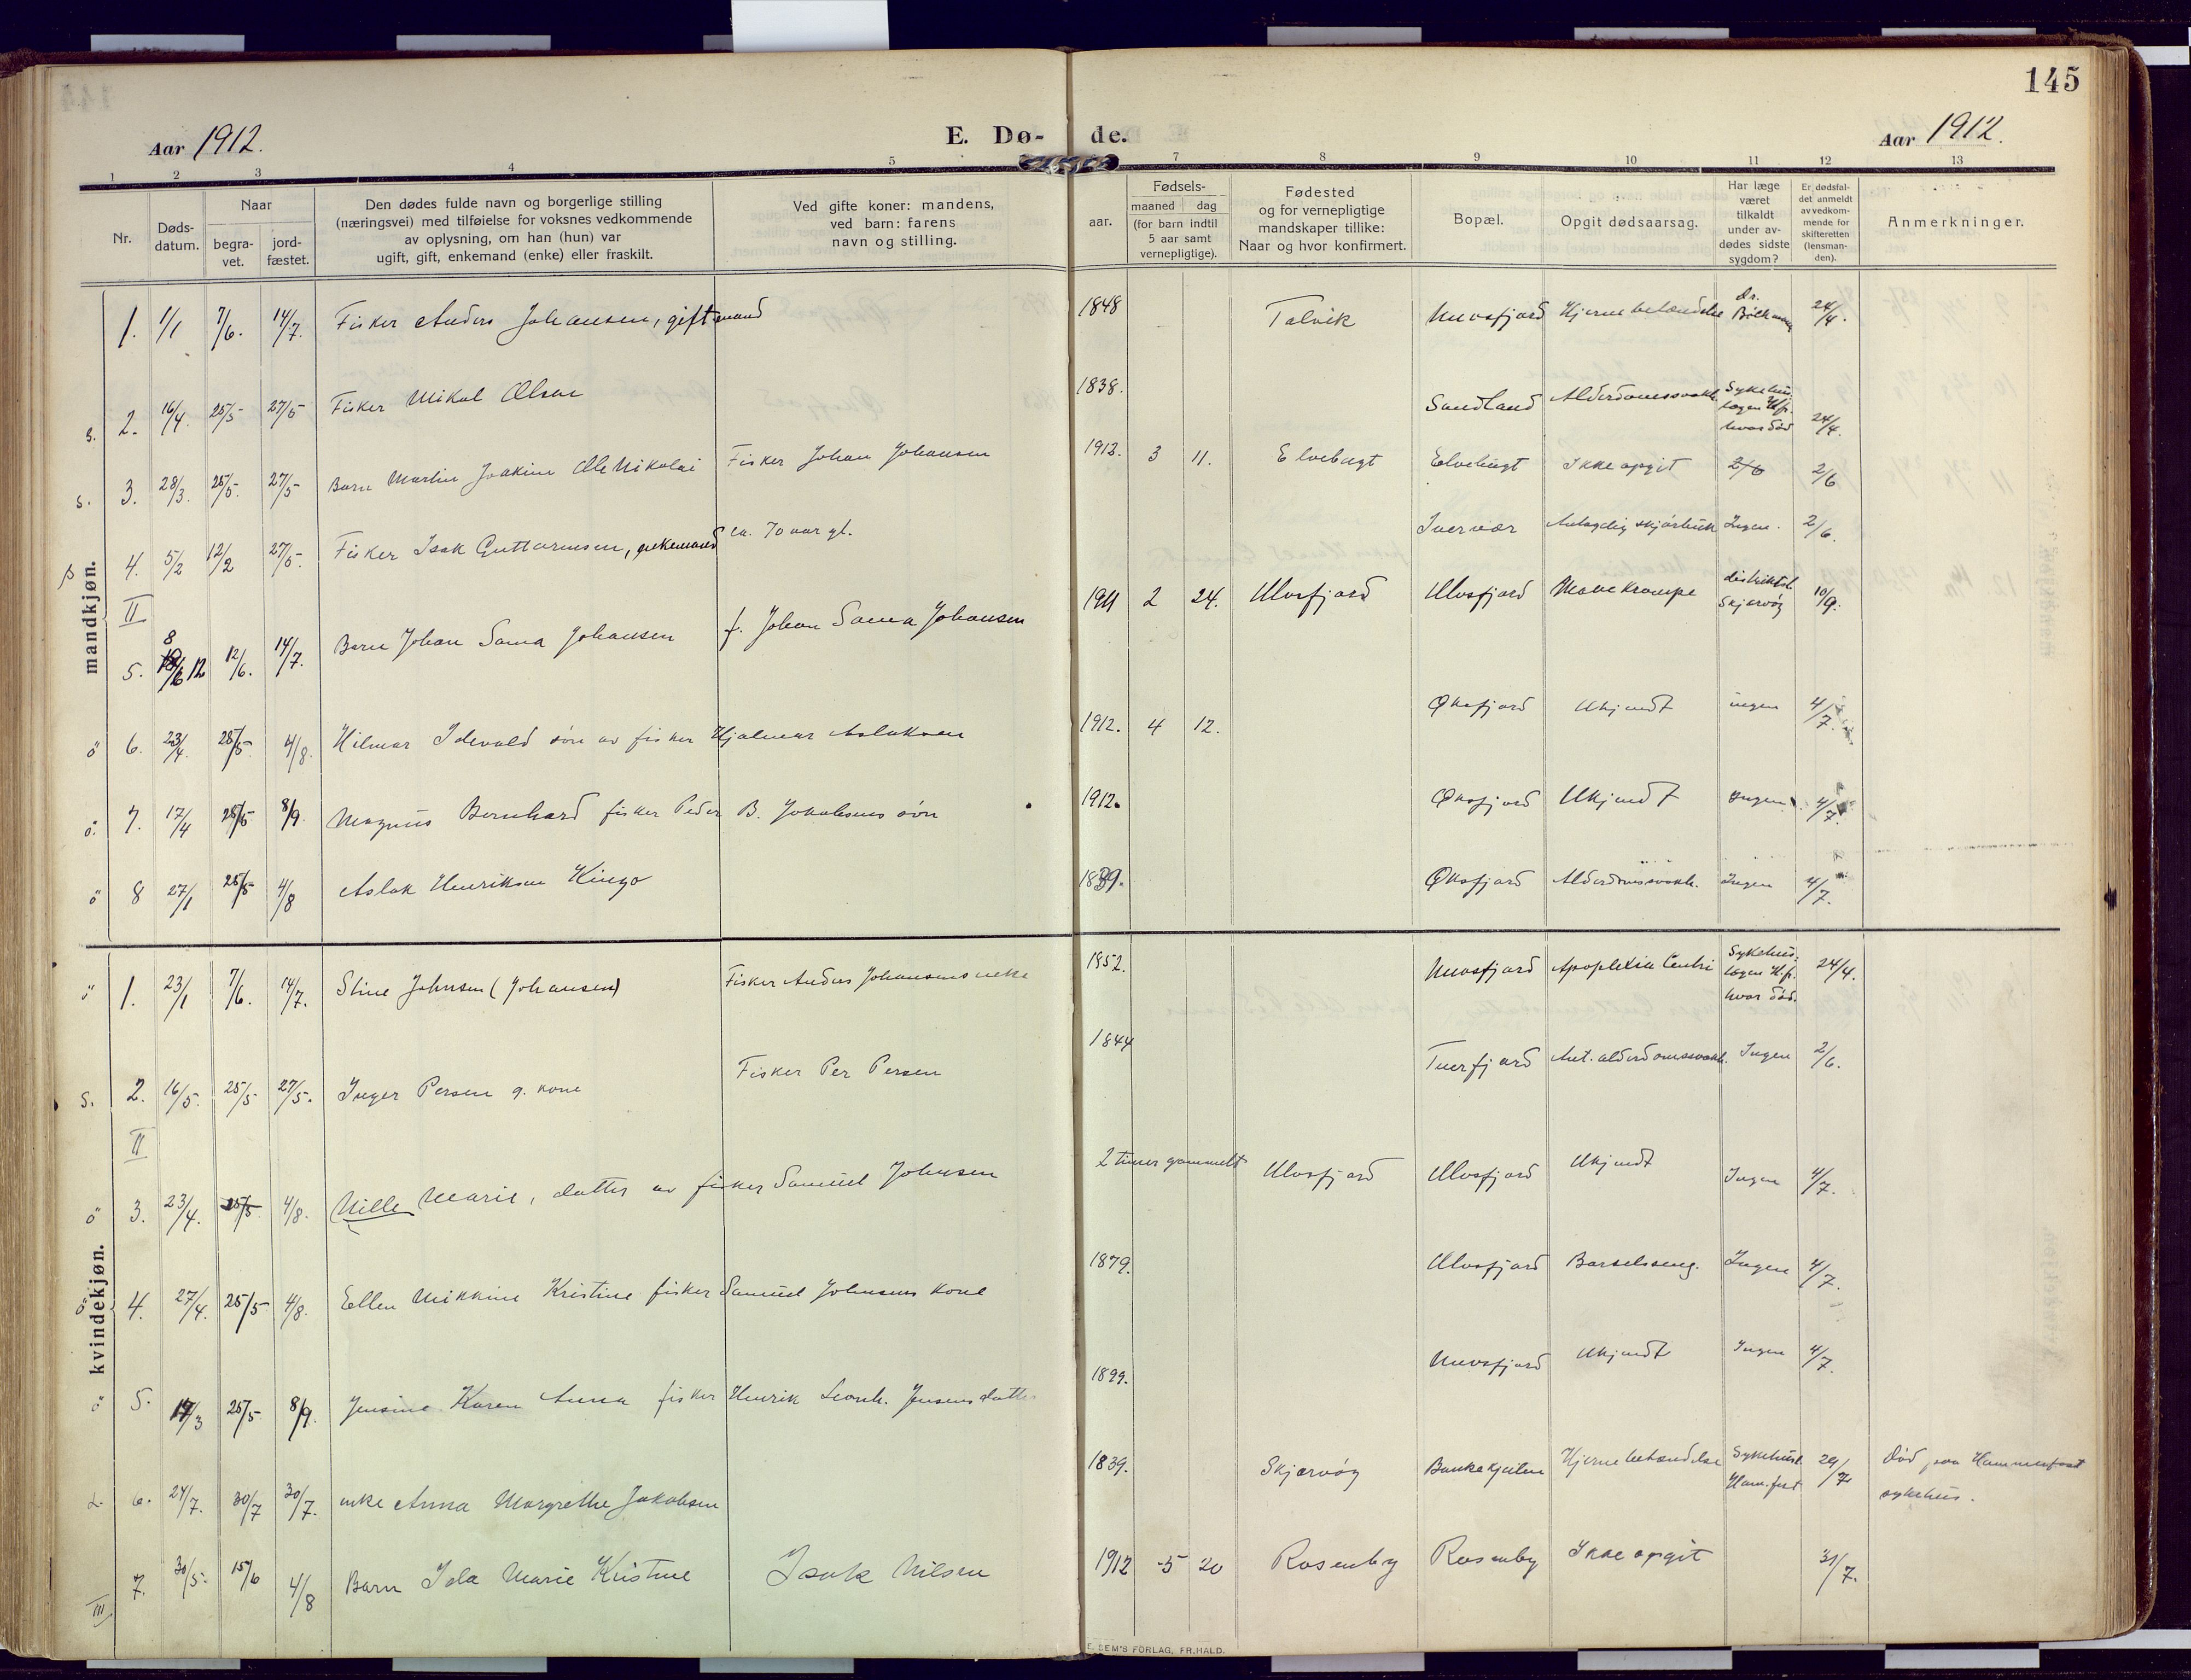 145
Aar 1912.
E. Dø- de.
Aar 1912.
1 2 3 4 5 7 8 9 10 11 12 13
Nr.
Døds-
datum.
Naar
begra-
vet.
jord-
fæstet.
Den dødes fulde navn og borgerlige stilling
(næringsvei) med tilføielse for voksnes vedkommende
av oplysning, om han (hun) var
ugift, gift, enkemand (enke) eller fraskilt.
Ved gifte koner: mandens,
ved barn: farens
navn og stilling.
aar.
Fødsels-
maaned dag
(for barn indtil
5 aar samt
vernepligtige).
Fødested
og for vernepligtige
mandskaper tillike:
Naar og hvor konfirmert.
Bopæl.
Opgit dødsaarsag.
Har læge
været
tilkaldt
under av-
dødes sidste
sygdom?
Er dødsfal-
det anmeldt
av vedkom-
mende for
skifteretten
(lensman-
den).
Anmerkninger.
mandkjøn.
1. 1/1 7/6. 14/7. Fisker Anders Johansen, gift mand 1848 Talvik Nuvsfjord Hjernebetændelse Dr. 24/4.
s. 2. 16/4 25/5 27/5 Fisker Mikal Olsen 1838. Sandland Alderdomssvakh. Sykehus- lægen H.f. hvor død 24/4.
s. 3. 28/3. 25/5. 27/5 Barn Martin Joakim Ole Nikolai Fisker Johan Johansen 1912. 3 11. Elvebugt Elvebugt Ikke opgit 2/6 2/6
s 4. 5/2 12/2 27/5. Fisker Isak Guttormsen, enkemand ca. 70 aar gl. Iversvær Antagelig Ingen. 2/6.
II
5. 8/6 12 12/6. 14/7. Barn Johan Sama Johansen f. Johan Sama Johansen 1911 2 24. Ulvsfjord Ulvsfjord Mavekrampe distriktsl. Skjervøy 10/9.
ö 6. 23/4. 25/5 4/8. Hilmar Idevald søn av fisker Hjalmar Aslaksen 1912. 4 12. Øksfjord Ukjendt ingen 4/7.
ö. 7. 17/4 25/5 8/9. Magnus Bernhard fisker Peder B. Jakobsens søn 1912. Øksfjord Ukjendt Ingen. 4/7.
ö 8 27/1 25/5 4/8 Aslak Henriksen Kingo 1839. Øksfjord Alderdomssvakh. Ingen 4/7.
kvindekjøn.
ö 1. 23/1 7/6. 14/7. Stine Johnsen (Johansen) Fisker Anders Johansens enke 1852. Nuvsfjord Apoplexia Cerebri Sykehus- lægen H.f. hvor død. 24/4.
s. 2. 16/5. 25/5 27/5. Inger Persen g. kone Fisker Per Persen 1844 Tverfjord Ant. alderdomssvakh. Ingen 2/6.
II
ö 3. 23/4. 25/5. 4/8. Nille Marie, datter av fisker Samuel Johnsen 2 timer gammelt Ulvsfjord Ulvsfjord Ukjendt Ingen 4/7.
ö 4. 27/4. 25/5 4/8. Ellen Mikkine Kristine fisker Samuel Johnsens kone 1879. Ulvsfjord Barselseng. Ingen 4/7.
ö 5. 17/3 25/5 8/9. Jensine Karen Anna fisker Henrik Leonh. Jensens datter 1899. Nuvsfjord Ukjendt Ingen 4/7.
6. 24/7. 30/7 30/7. enke Anna Margrethe Jakobsen 1839. Skjervøy Hjernebetændelse Sykehusl. Ham.fest 29/7 Død paa Hammerfest sykehus.
7. 30/5. 15/6 4/8 Barn Ida Marie Kristine Isak Nilsen 1912 5 20 Rosenby Rosenby Ikke opgit 31/7.
III
E. SEM'S FORLAG, FR.HALD.